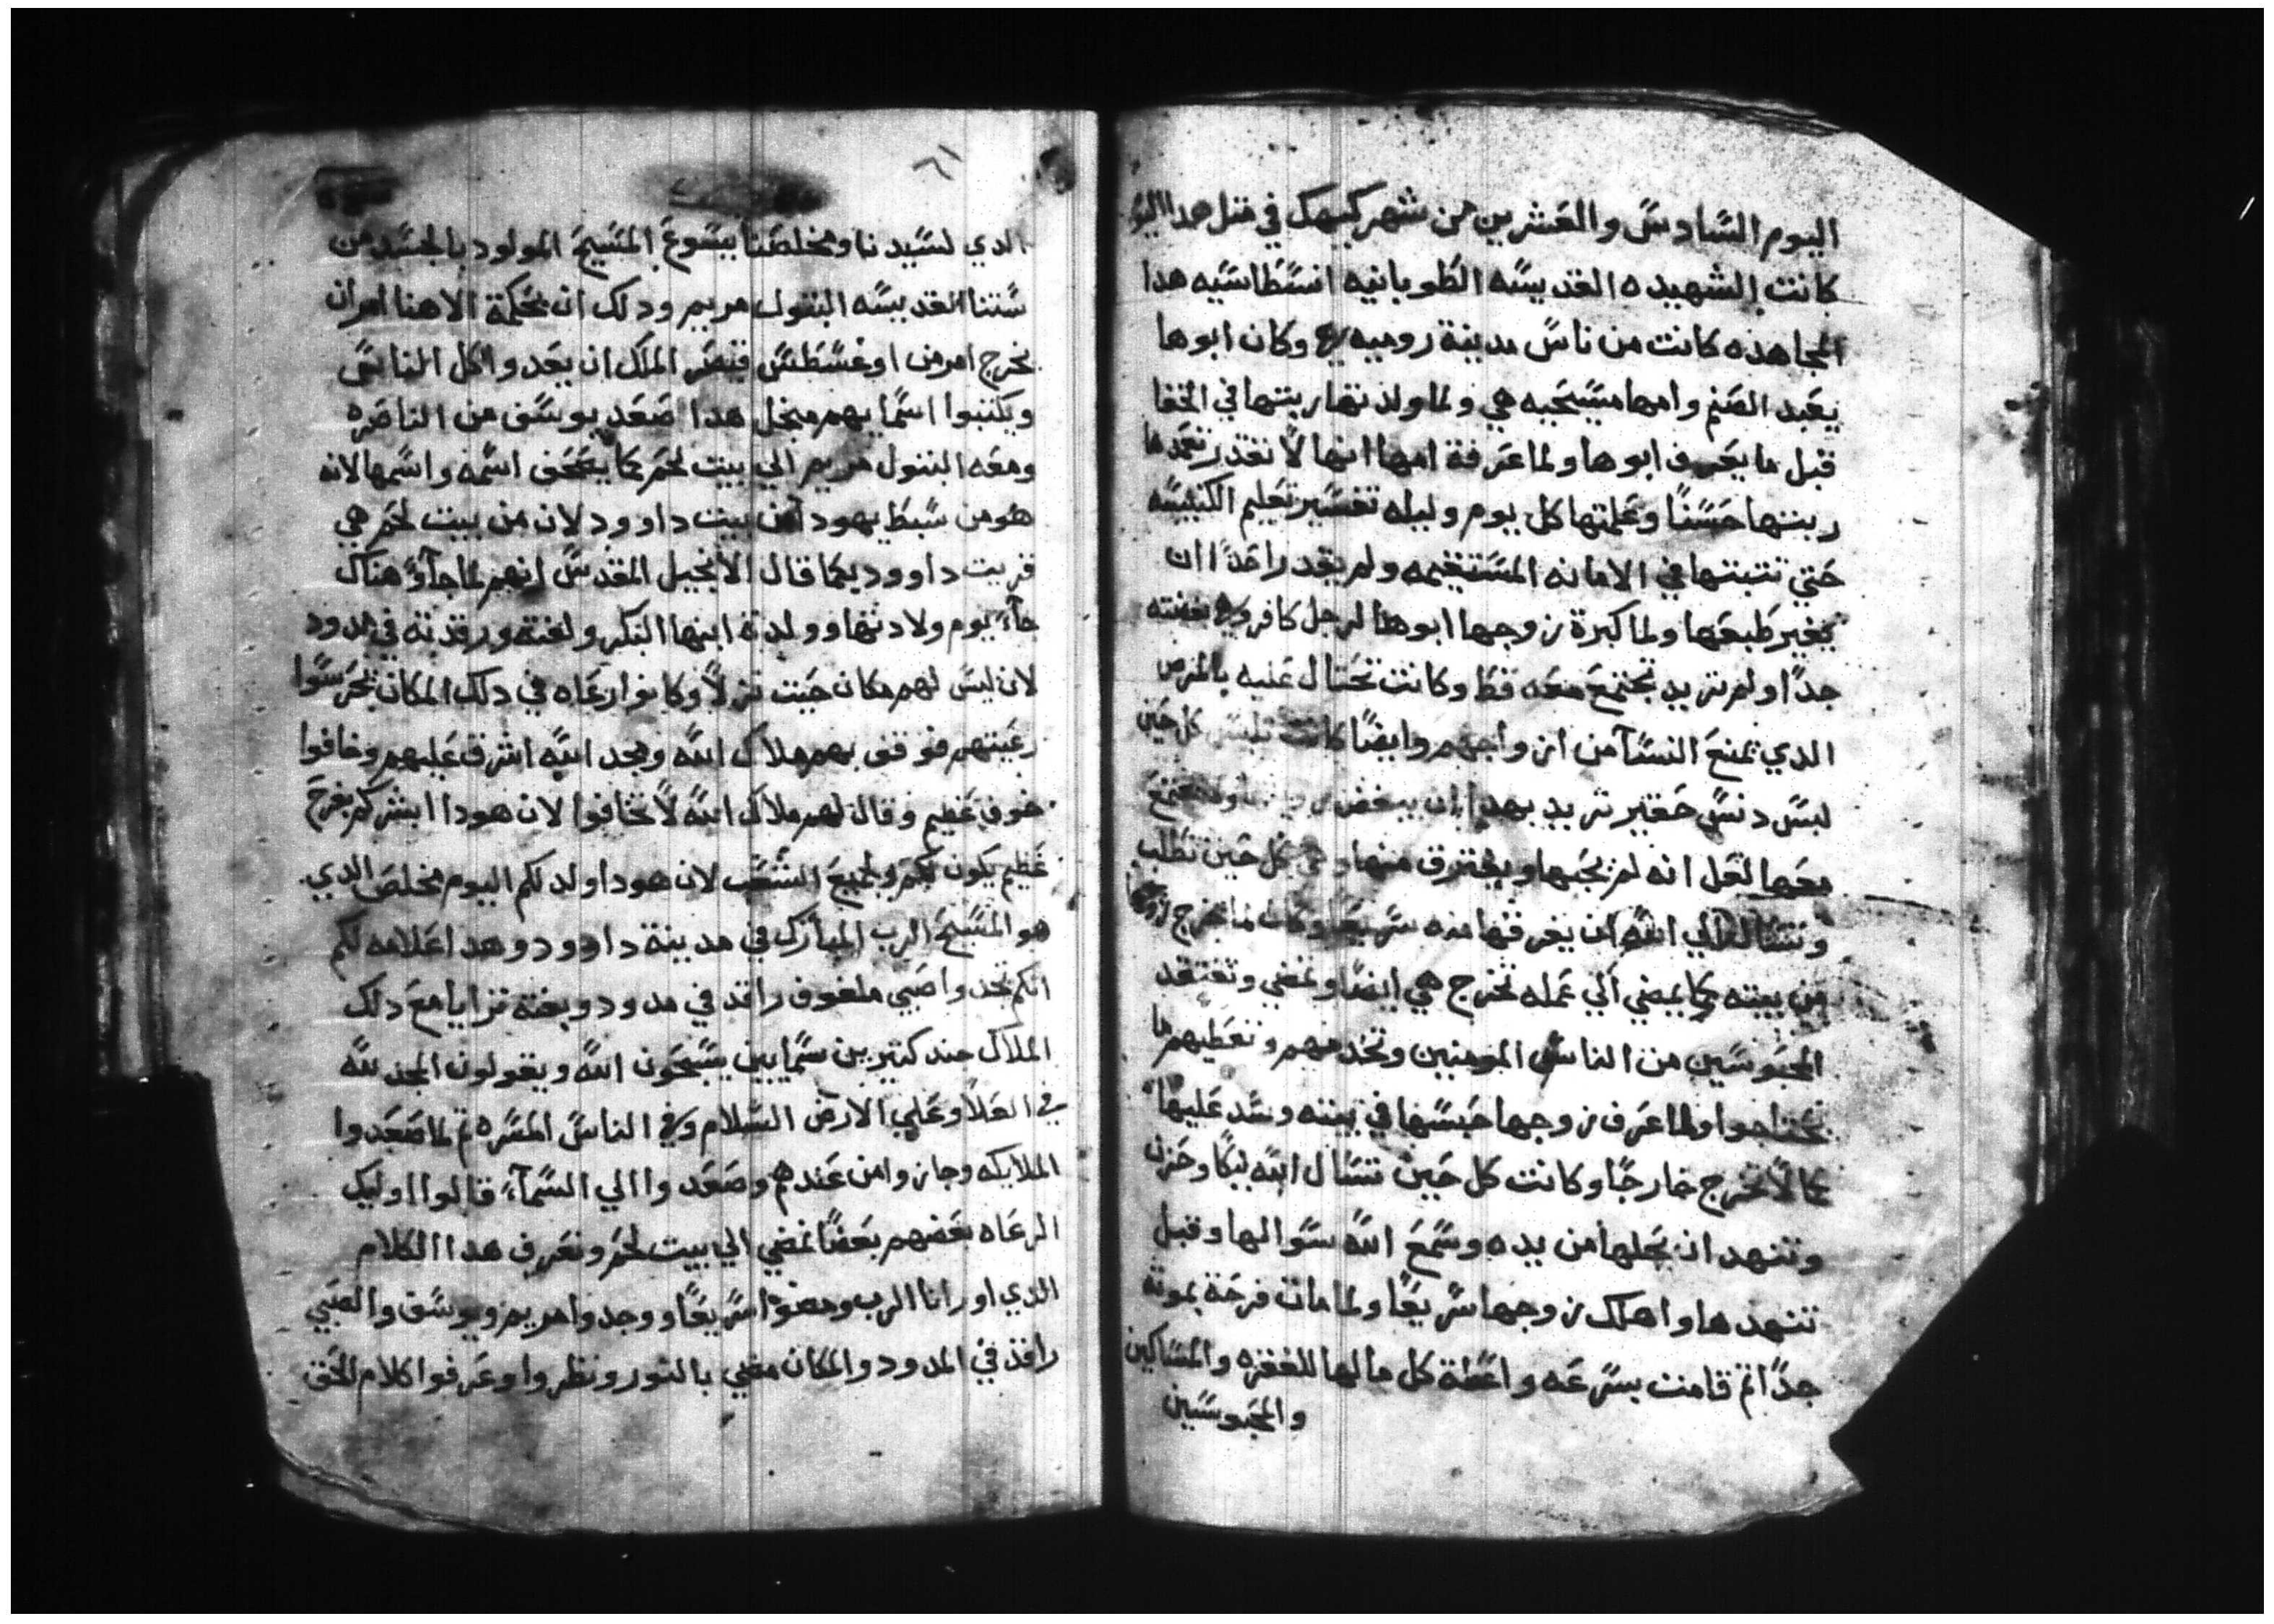 اليوم السادس والعشرين من شهر كيهك في متل هدا اليوم
كانت الشهيده القديسه الطوبانيه انسطاسيه هدا
المجاهده كانت من ناس مدينة روميه وكان ابوها
يعبد الصنم وامها مسيحيه هي ولما ولدتها ربتها في الخفا
قبل ما يعرف ابوها ولما عرفة امها انها لا تقدر تعمدها
ربتها حسنًا وعلمتها كل يوم وليله تفسير تعليم الكنيسه
حتي تتبتها في الامانه المستقيمه ولم يقدر احدًا ان
يغير طبعها ولما كبرة زوجها ابوها لرجل كافر وهي بغضته
جدًا ولم تريد تجتمع معه قط وكانت تحتال عليه بالمرض
الدي تمنع النسآ من ازواجهم وايضًا كانت تلبس كل حين
لبس دنس حقير تريد بهدا ان يبغض ولا يجتمع
معها لعل انه لم يحبها ويفترق منها وهي كل حين تطلب
وتسال الي الله ان يفرقها منه سريعًا وكانت لما يخرج
من بيته كما يمضي الي عمله تخرج هي ايضًا وتمضي وتفتقد
المحبوسين من الناس المومنين وتخدمهم وتعطيهم ما
يحتاجوا ولما عرف زوجها حبسها في بيته وسد عليها
كما لا تخرج خارجًا وكانت كل حين تسال الله ببكا وحزن
وتنهد ان يخلها من يده وسمع الله سوالها وقبل
تنهدها واهلك زوجها سريعًا ولما مات فرحة بموته
جدًا تم قامت بسرعه واعطة كل مالها للفقره والمساكين
والمحبوسين
الدي لسيدنا ومخلصنا يسوع المسيح المولود بالجسد من
ستنا القديسه البتول مريم ودلك ان بحكمة الاهنا امر ان
يخرج امر من اوغسطس قيصر الملك ان يعدوا كل الناس
ويكتبوا اسمايهم منجل هدا صعد يوسف من الناصره
ومعه البتول مريم الي بيت لحم كما يتحقق اسمه واسمها لانه
هو من سبط يهودا من بيت داوود لان من بيت لحم هي
قريت داوود كما قال الانجيل المقدس انهم لما جآوً هناك
جآء يوم ولادتها وولدة ابنها البكر ولفته ورقدته في مدود
لان ليس لهم مكان حيت نزلًا وكانوا رعاه في دلك المكان يحرسوا
رعيتهم فوقف بهم ملاك الله ومجد الله اشرق عليهم وخافوا
خوف عظيم وقال لهم ملاك الله لا تخافوا لان هودا ابشركم بفرح
عظيم يكون لكم ولجميع الشعب لان هودا ولد لكم اليوم مخلص الدي
هو المسيح الرب المبارك في مدينة داوود وهدا علامه لكم
انكم تجدوا صبي ملفوف راقد في مدود وبغتة تزايا مع دلك
الملاك جند كتيرين سمايين يسبحون الله ويقولون المجد لله
في العلا وعلي الارض السلام وفي الناس المسره تم لما صعدوا
الملايكه وجازوا من عندهم وصعدوا الي السمآء قالوا اوليك
الرعاه بعضهم بعضًا نمضي الي بيت لحم ونعرف هدا الكلام
الدي اورانا الرب ومضوا سريعًا ووجدوا مريم ويوسف والصبي
راقد في المدود والمكان مضي بالنور ونظروا وعرفوا كلام الحق